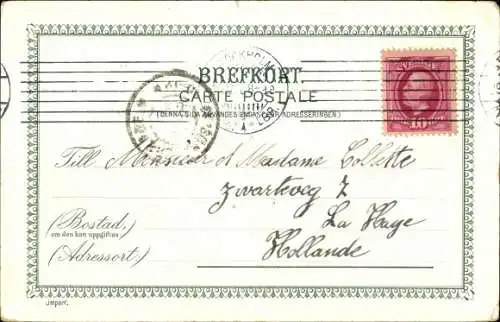 STOCKHOLM
SVERIGE
BREFKORT.
CARTE POSTALE
(DENNA SIDA ANVÄNDES ENDAST FÖR ADRESSERINGEN.)
10
Till Monsieur & Madame Collette
Zwarteweg 7
La Haye
Hollande
(Bostad,
om den kan uppgifvas)
(Adressort.)
Import.